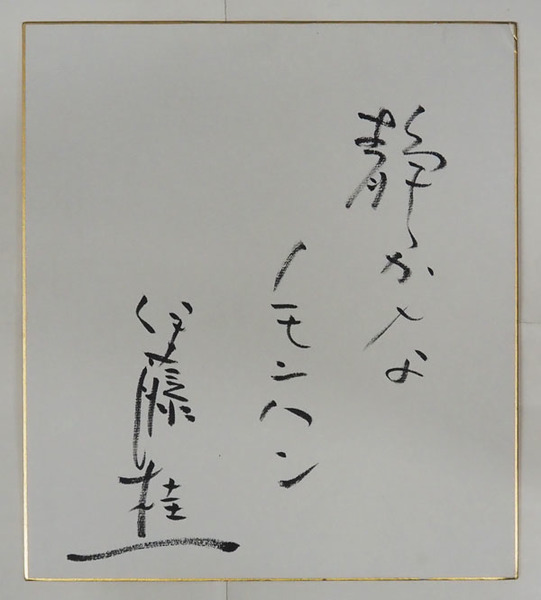 静かな
ノモンハン
伊藤桂一